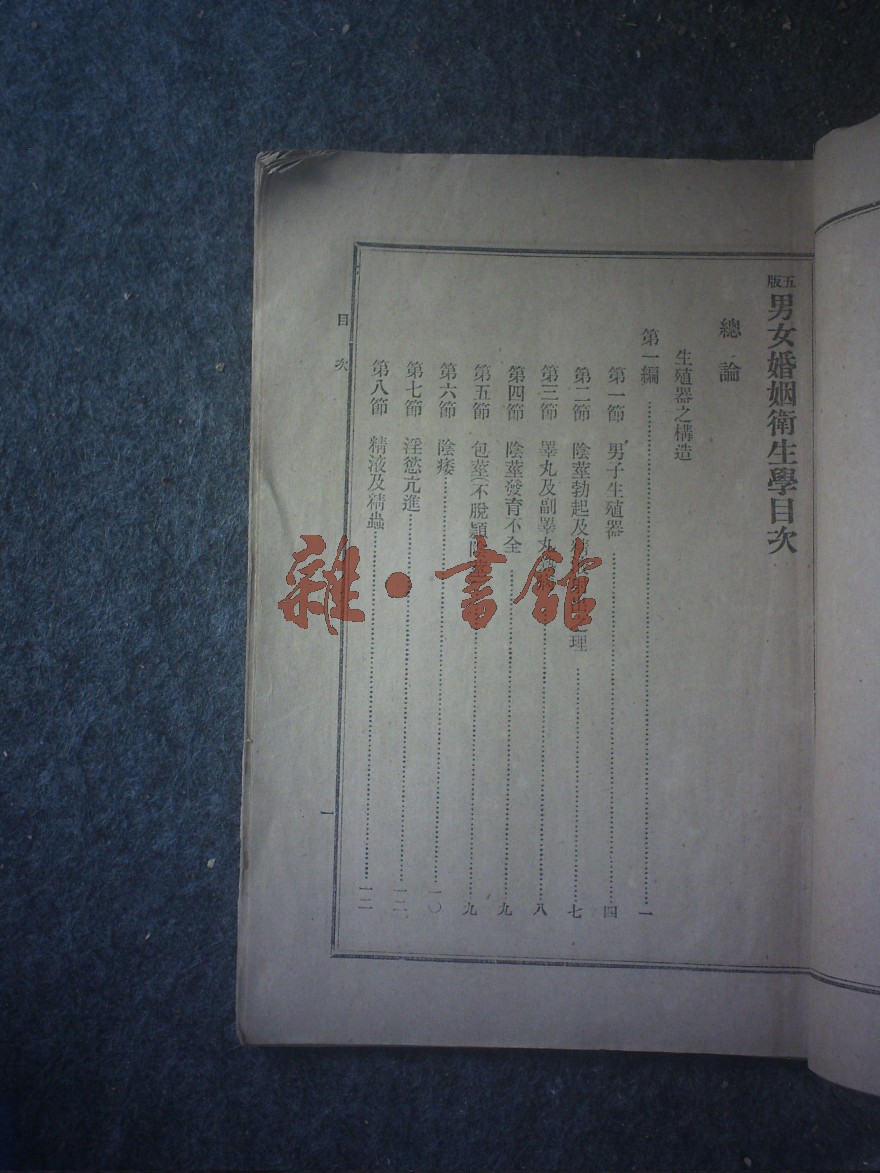 五版 男女婚姻衛生學目次
總論
生殖器之構造
第一編 一
第一節 男子生殖器 四
第二節 陰莖勃起及理 七
第三節 睪丸及副睪丸 八
第四節 陰莖發育不全 九
第五節 包莖(不脫穎 九
第六節 陰痿 一〇
第七節 淫慾亢進 一二
第八節 精液及精蟲 一二
目次
一
雜·書館